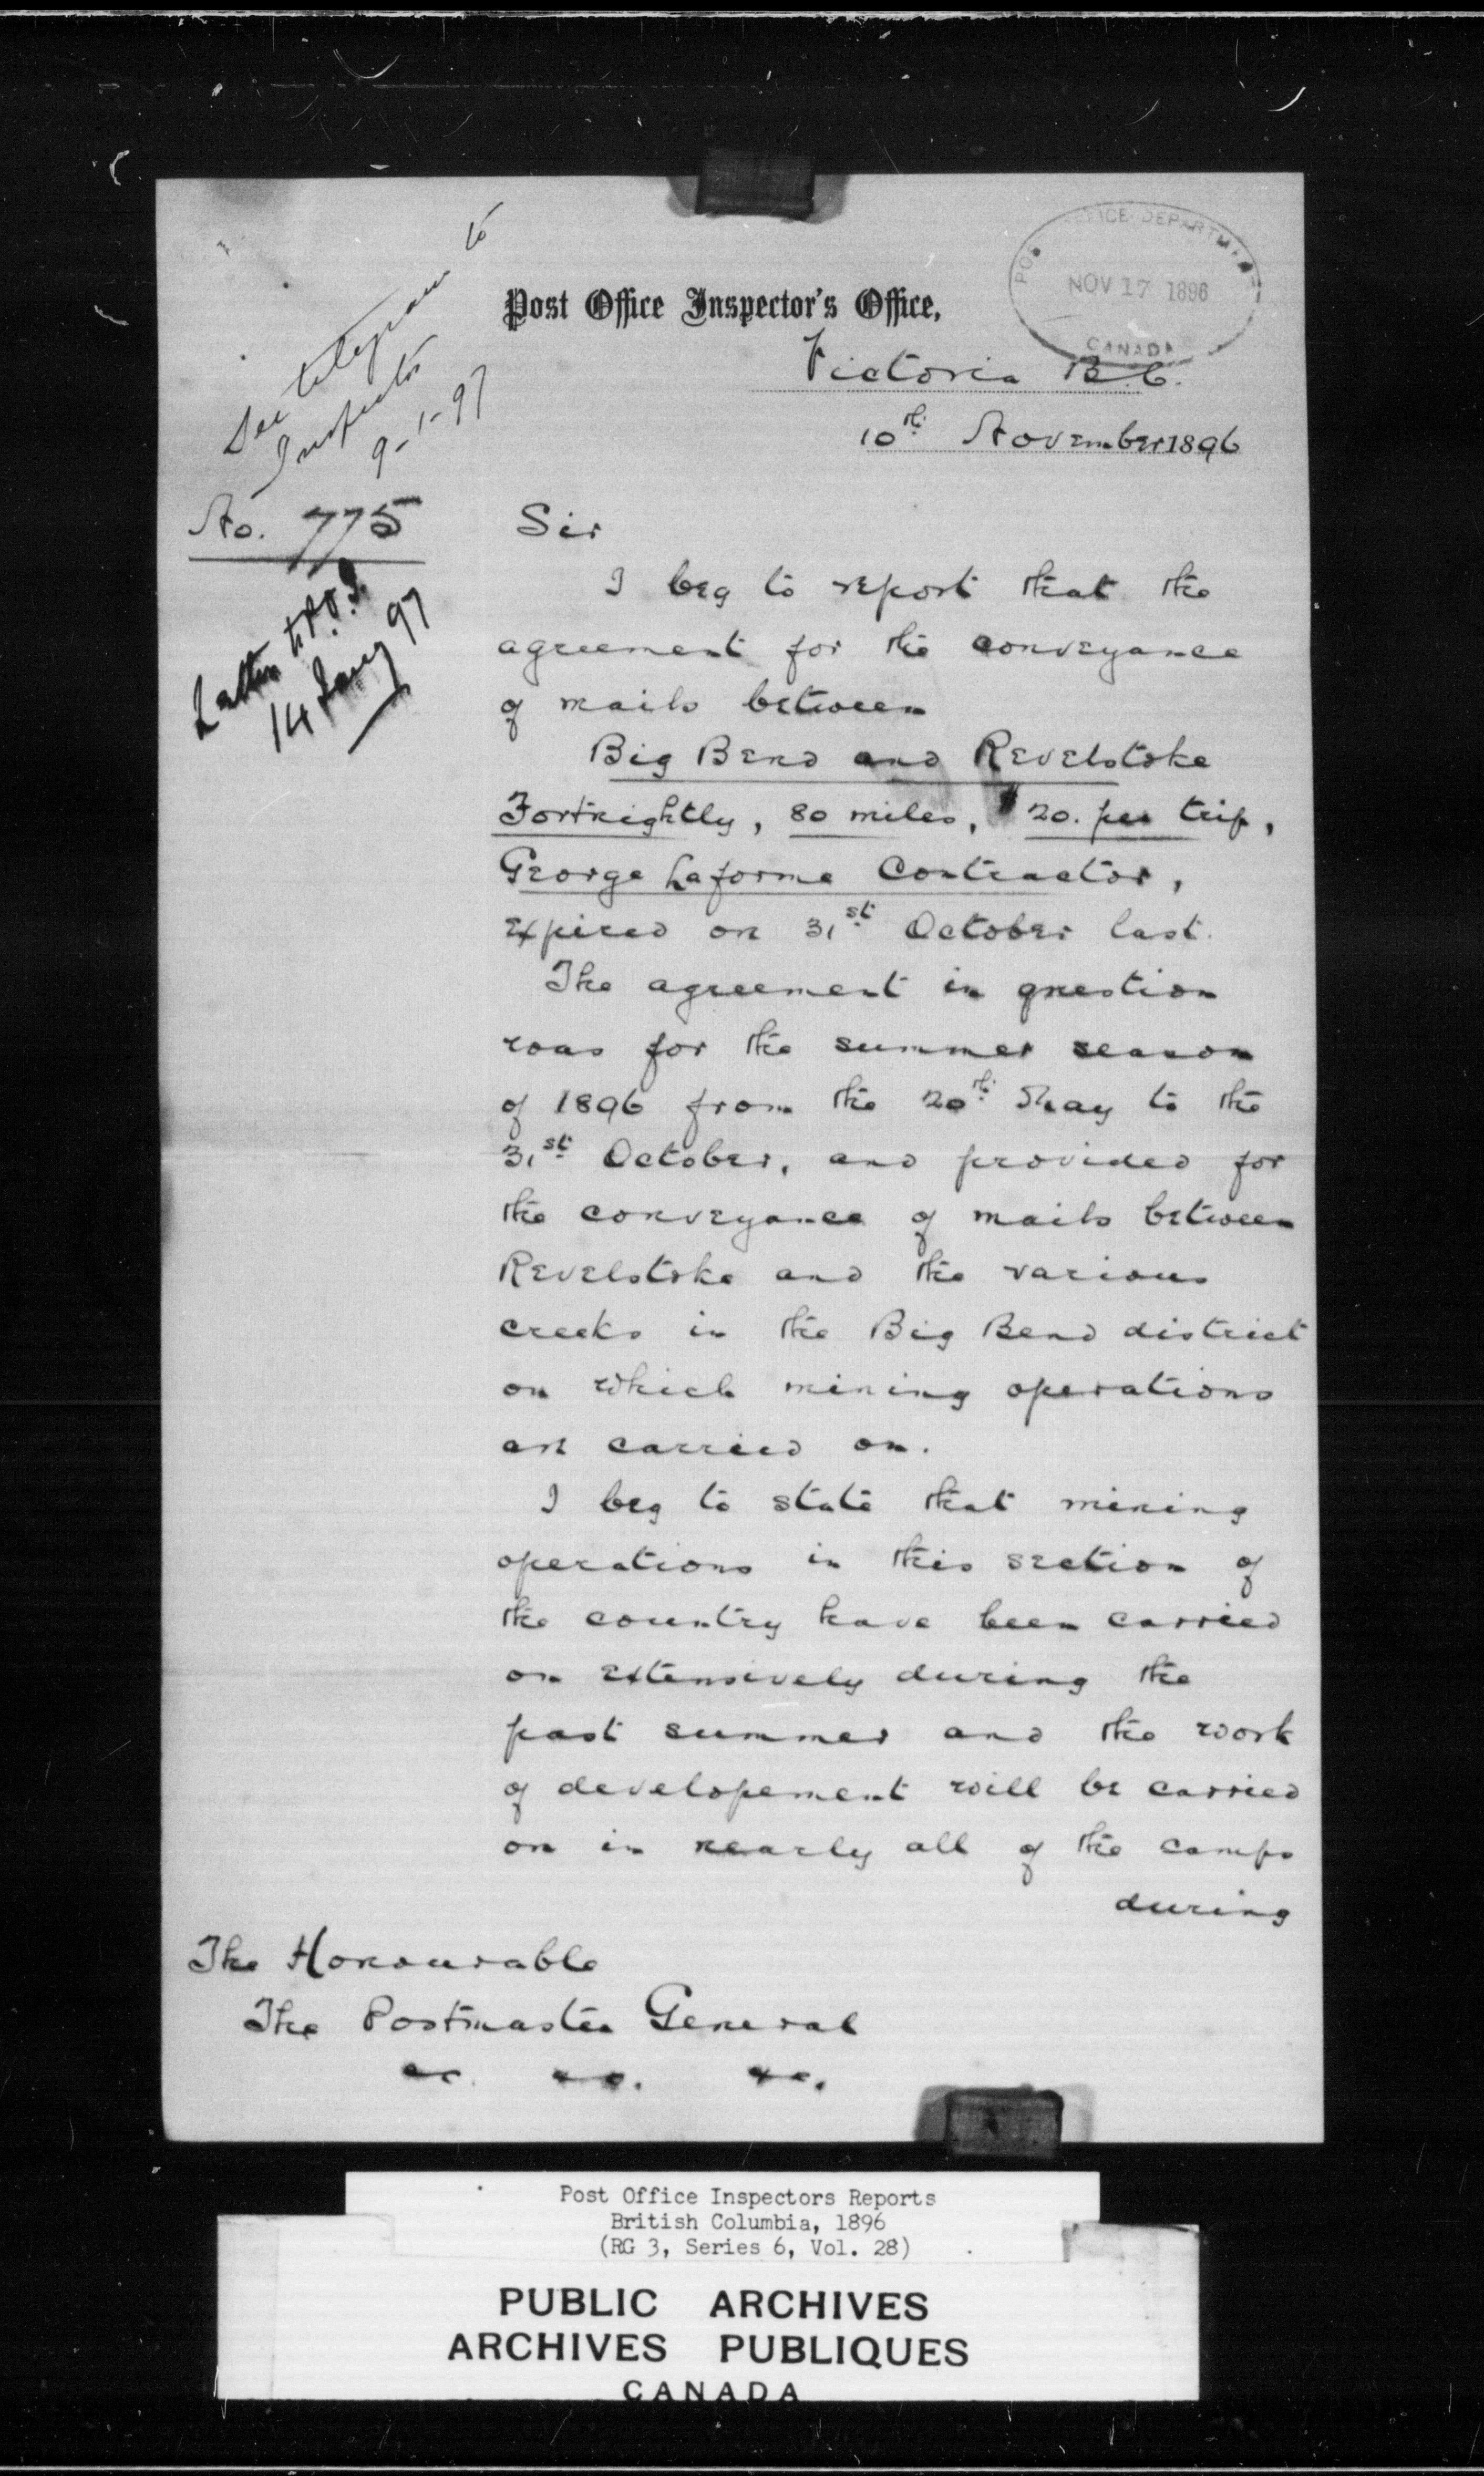 See telegram to
Inspector
9-1-97
POS OFFICE DEPARTMENT
NOV 17 1896
CANADA
Post Office Inspector's Office,
Victoria B.C.
10th November 1896
No. 775
Letter to P.O.I.
14 Jany 97
Sir
I beg to report that the
agreement for the conveyance
of mails between
Big Bend and Revelstoke
Fortnightly, 80 miles, $20. per trip,
George Laforme Contractor,
expired on 31st October last.
The agreement in question
was for the summer season
of 1896 from the 20th May to the
31st October, and provided for
the conveyance of mails between
Revelstoke and the various
creeks in the Big Bend district
on which mining operations
are carried on.
I beg to state that mining
operations in this section of
the country have been carried
on extensively during the
past summer and the work
of developement will be carried
on in nearly all of the camps
during
The Honourable
The Postmaster General
&c. &c. &c.
Post Office Inspectors Reports
British Columbia, 1896
(RG 3, Series 6, Vol. 28)
PUBLIC ARCHIVES
ARCHIVES PUBLIQUES
CANADA